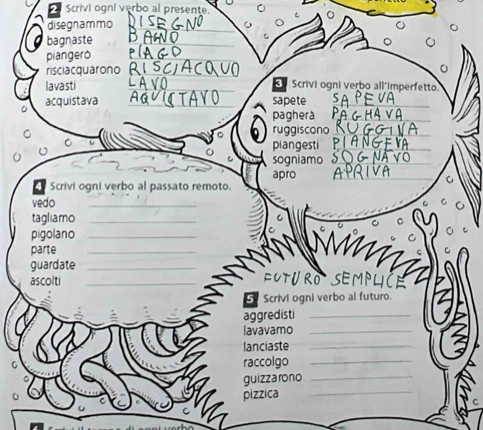 2 Scrivi ogni verbo al presente.
disegnammo DISEGNO
bagnaste BAGNO
piangerò PIAGO
risciacquarono RISCIACQUO
lavasti LAVO
acquistava AQUISTAVO
3 Scrivi ogni verbo all'imperfetto.
sapete SAPEVA
pagherà PAGHAVA
ruggiscono RUGGIVA
piangesti PIANGEVA
sogniamo SOGNAVO
apro APRIVA
4 Scrivi ogni verbo al passato remoto.
vedo
tagliamo
pigolano
parte
guardate
ascolti
FUTURO SEMPLICE
5 Scrivi ogni verbo al futuro.
aggredisti
lavavamo
lanciaste
raccolgo
guizzarono
pizzica